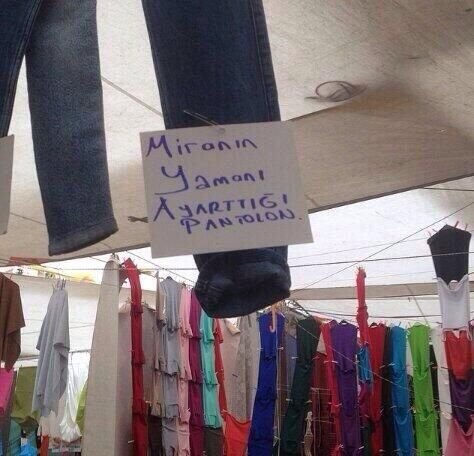 Miranın
Yamanı
AYARTTIĞI
PANTOLON.